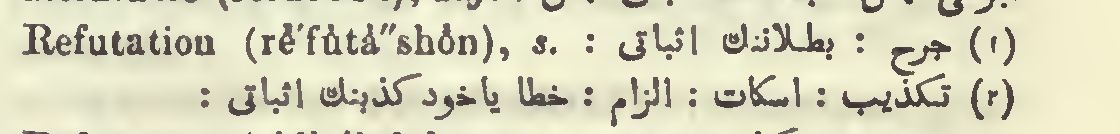 Refutation (rĕ′fůtå″shŏn), s. : (١) جرح : بطلاننك اثباتی :
(٢) تكذیب : اسكات : الزام : خطا یاخود كذبنك اثباتی :